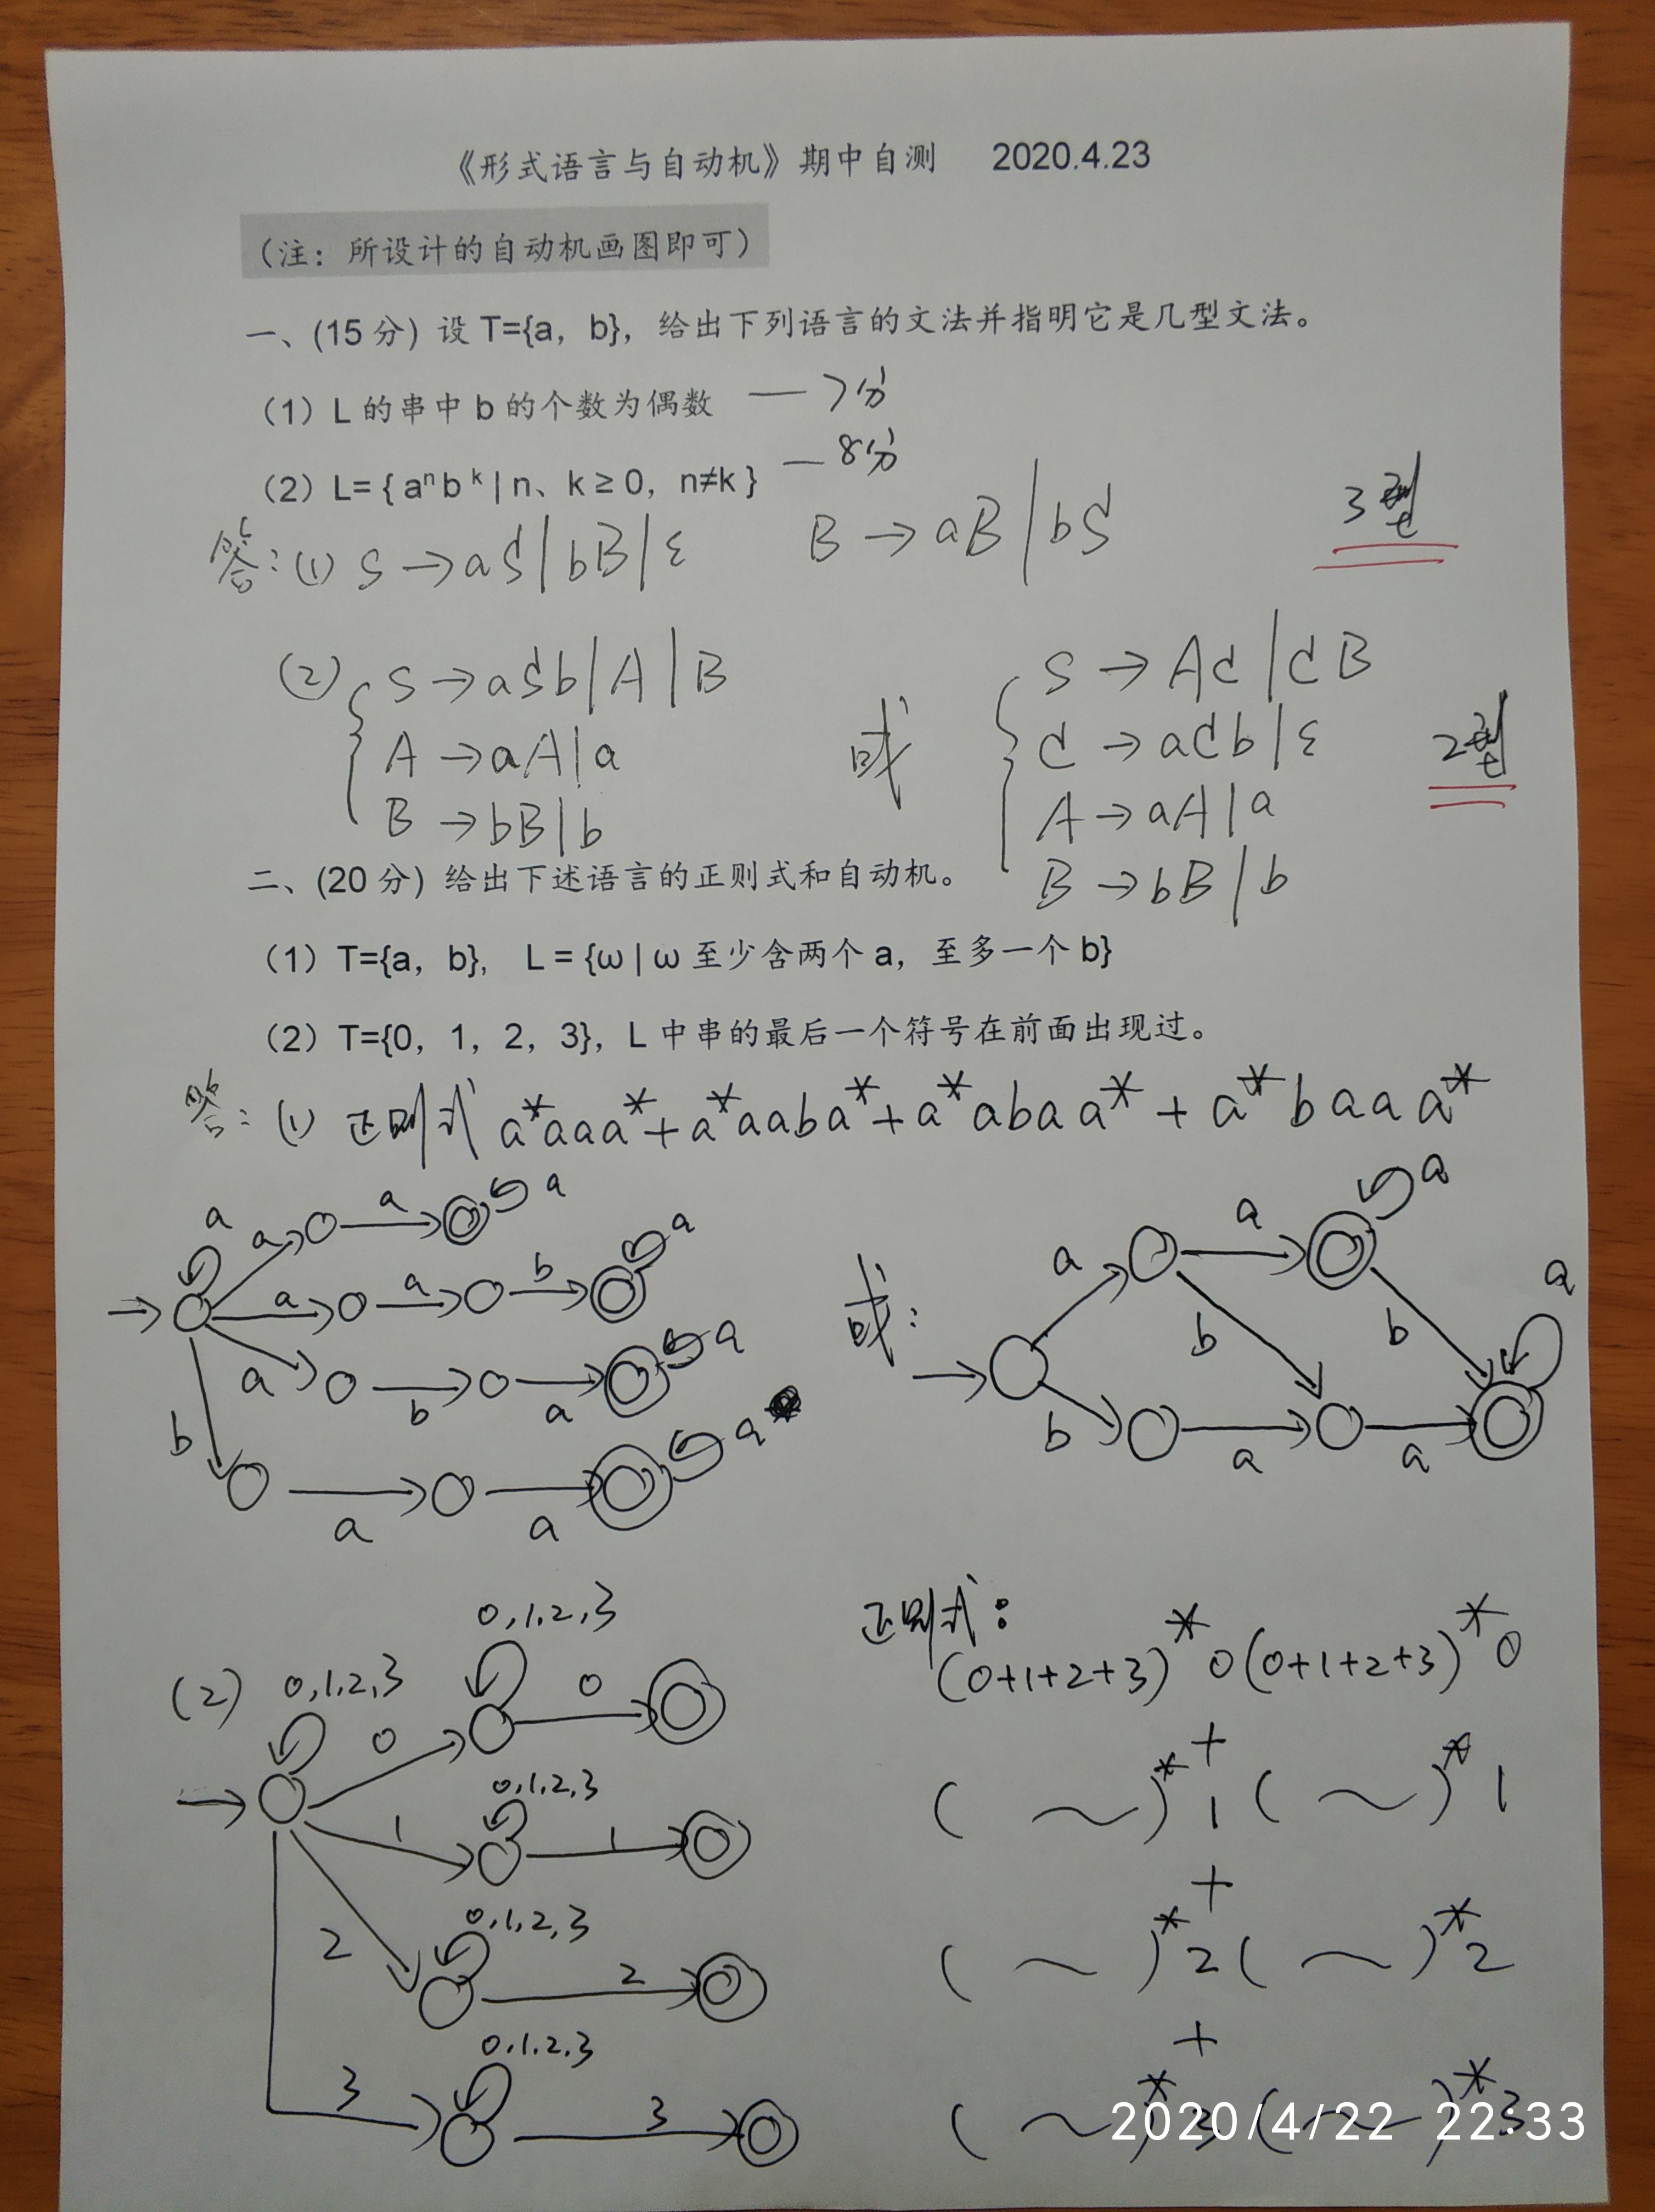 《形式语言与自动机》期中自测 2020.4.23
(注：所设计的自动机画图即可)
一、(15 分) 设 T={a，b}，给出下列语言的文法并指明它是几型文法。
(1) L 的串中 b 的个数为偶数 — 7分
(2) L= { aⁿ b ᵏ | n、k ≥ 0，n≠k } — 8分
答：(1) S → aS | bB | ε B → aB | bS 3型
(2) S → aSb | A | B
A → aA | a
B → bB | b
或
S → AC | CB
C → aCb | ε
A → aA | a
B → bB | b
2型
二、(20 分) 给出下述语言的正则式和自动机。
(1) T={a，b}， L = {ω | ω 至少含两个 a，至多一个 b}
(2) T={0，1，2，3}，L 中串的最后一个符号在前面出现过。
答：(1) 正则式 a*aaa* + a*aaba* + a*abaa* + a*baaa*
a a a a
a a b a
a b a a
b a a a
或：
a a a
b b a
b a a
(2) 0,1,2,3 0 0,1,2,3 0
1 0,1,2,3 1
2 0,1,2,3 2
3 0,1,2,3 3
正则式：
(0+1+2+3)* 0 (0+1+2+3)* 0
+
( ~ )* 1 ( ~ )* 1
+
( ~ )* 2 ( ~ )* 2
+
( ~ )* 3 ( ~ )* 3
2020/4/22 22:33